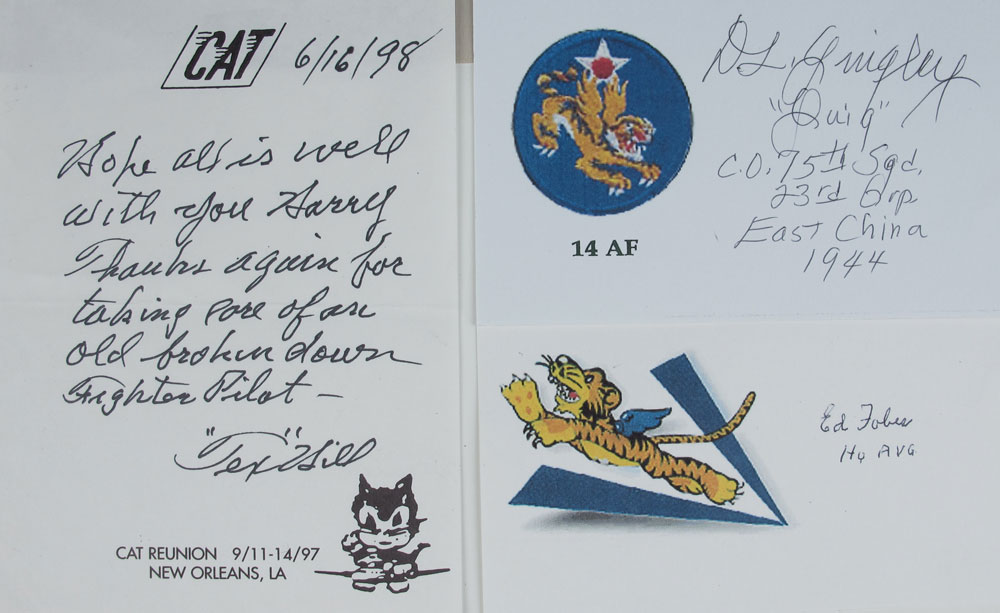 CAT 6/16/98
Hope all is well
with you Harry
Thanks again for
taking care of an
old broken down
Fighter Pilot –
"Tex" Hill
CAT REUNION 9/11-14/97
NEW ORLEANS, LA
14 AF
D L. Quigley
"Quig"
C.O. 75th Sqd.
23rd Grp.
East China
1944
Ed Fobes
Hq AVG